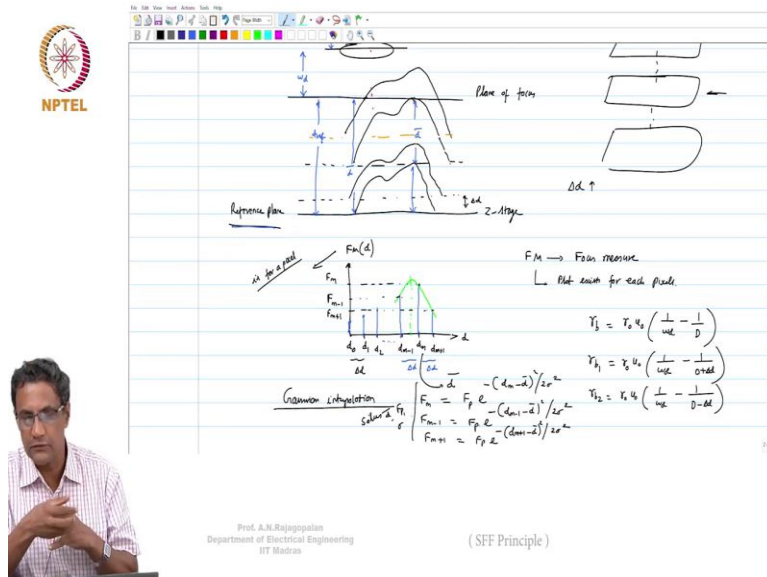 File Edit View Insert Actions Tools Help
Page Width
B I
NPTEL
w_d
Plane of focus
d̄
d
Δd
Reference plane
Z-stage
Δd ↑
is for a pixel
F_M(d)
F_m
F_m-1
F_m+1
d_0 d_1 d_2 d_m-1 d_m d_m+1
d
Δd Δd Δd
d̄
FM → Focus measure
Plot exists for each pixels.
r_b = r_0 u_0 (1/w_d - 1/D)
r_b1 = r_0 u_0 (1/w_d - 1/D+Δd)
r_b2 = r_0 u_0 (1/w_d - 1/D-Δd)
Gaussian interpolation
F_m = F_p e^-(d_m-d̄)²/2σ²
F_m-1 = F_p e^-(d_m-1-d̄)²/2σ²
F_m+1 = F_p e^-(d_m+1-d̄)²/2σ²
Prof. A.N.Rajagopalan
Department of Electrical Engineering
IIT Madras
( SFF Principle )